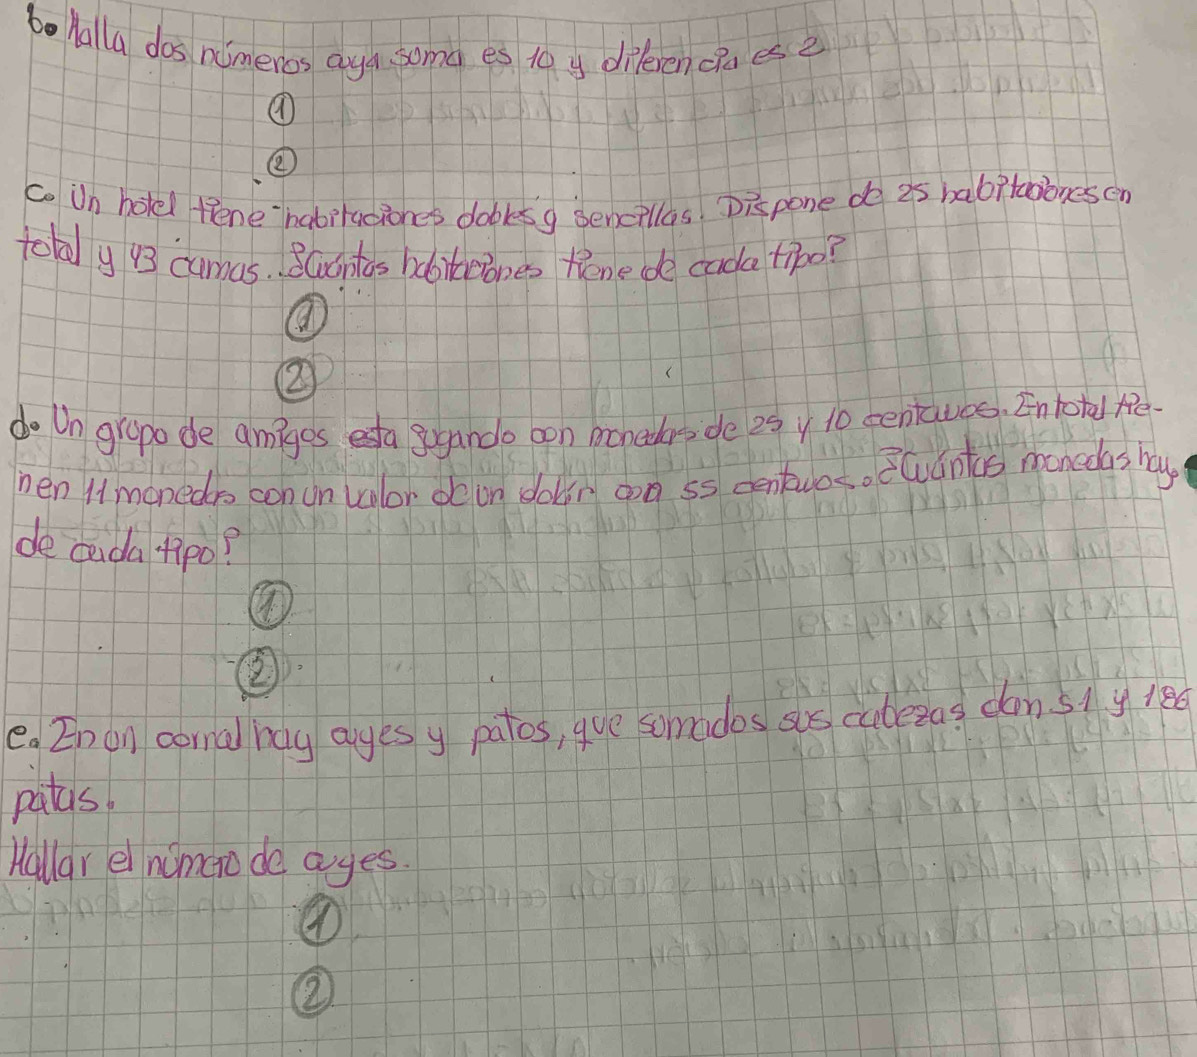 b. Halla dos números cuya suma es 10 y diferencia es 2
①
②
c. Un hotel tiene habitaciones dobles y sencillas. Dispone de 25 habitaciones en
total y 43 camas. ¿Cuántas habitaciones tiene de cada tipo?
①
②
d. Un grupo de amigos esta jugando con monedas de 25 y 10 centavos. En total tie-
nen 11 monedas con un valor de un dolár con 55 centavos. ¿Cuántas monedas hay
de cada tipo?
①
②
e. En un corral hay cuyes y patos, que sumados sus cabezas dan 51 y 186
patas.
Hallar el número de cuyes.
①
②